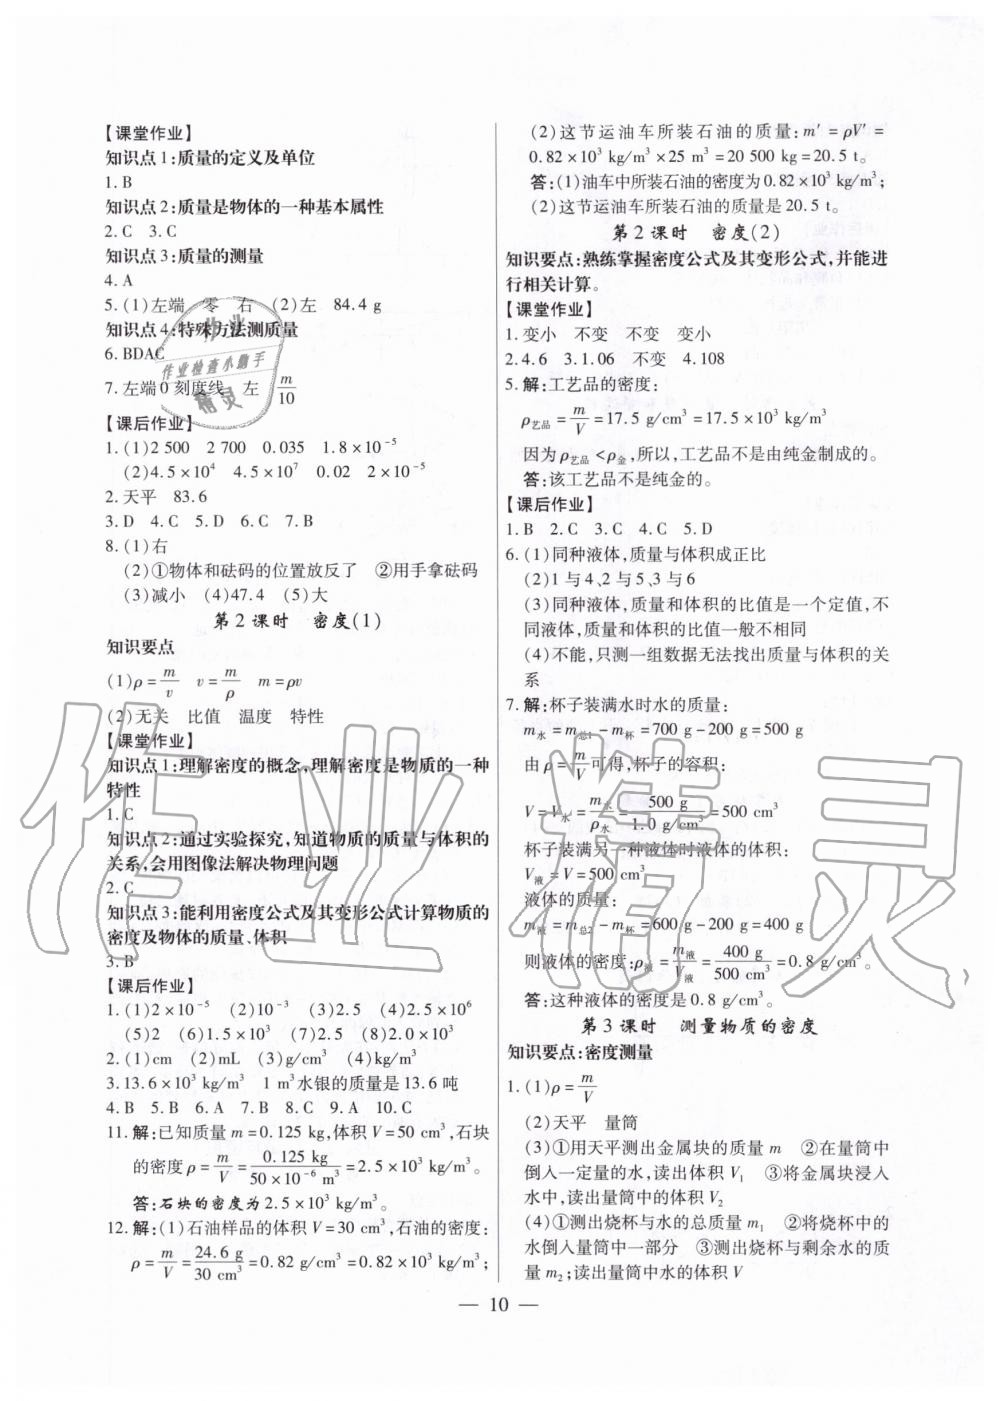 【课堂作业】
知识点1:质量的定义及单位
1. B
知识点2:质量是物体的一种基本属性
2. C  3. C
知识点3:质量的测量
4. A
5. (1)左端  零  右  (2)左  84.4 g
知识点4:特殊方法测质量
6. BDAC
7. 左端0刻度线  左  m/10
【课后作业】
1. (1)2 500  2 700  0.035  1.8×10⁻⁵
(2)4.5×10⁴  4.5×10⁷  0.02  2×10⁻⁵
2. 天平  83.6
3. D  4. C  5. D  6. C  7. B
8. (1)右
(2)①物体和砝码的位置放反了  ②用手拿砝码
(3)减小  (4)47.4  (5)大
第2课时  密度(1)
知识要点
(1)ρ=m/v  v=m/ρ  m=ρv
(2)无关  比值  温度  特性
【课堂作业】
知识点1:理解密度的概念,理解密度是物质的一种
特性
1. C
知识点2:通过实验探究,知道物质的质量与体积的
关系,会用图像法解决物理问题
2. C
知识点3:能利用密度公式及其变形公式计算物质的
密度及物体的质量、体积
3. B
【课后作业】
1. (1)2×10⁻⁵  (2)10⁻³  (3)2.5  (4)2.5×10⁶
(5)2  (6)1.5×10³  (7)2.5  (8)2.0×10³
2. (1)cm  (2)mL  (3)g/cm³  (4)kg/m³
3. 13.6×10³ kg/m³  1 m³水银的质量是13.6吨
4. B  5. B  6. A  7. B  8. C  9. A  10. C
11. 解:已知质量m=0.125 kg,体积V=50 cm³,石块
的密度ρ=m/V=0.125 kg/50×10⁻⁶ m³=2.5×10³ kg/m³。
答:石块的密度为2.5×10³ kg/m³。
12. 解:(1)石油样品的体积V=30 cm³,石油的密度:
ρ=m/V=24.6 g/30 cm³=0.82 g/cm³=0.82×10³ kg/m³;
(2)这节运油车所装石油的质量:m′=ρV′=
0.82×10³ kg/m³×25 m³=20 500 kg=20.5 t。
答:(1)油车中所装石油的密度为0.82×10³ kg/m³;
(2)这节运油车所装石油的质量是20.5 t。
第2课时  密度(2)
知识要点:熟练掌握密度公式及其变形公式,并能进
行相关计算。
【课堂作业】
1. 变小  不变  不变  变小
2. 4.6  3. 1.06  不变  4. 108
5. 解:工艺品的密度:
ρ艺品=m/V=17.5 g/cm³=17.5×10³ kg/m³
因为ρ艺品<ρ金,所以,工艺品不是由纯金制成的。
答:该工艺品不是纯金的。
【课后作业】
1. B  2. C  3. C  4. C  5. D
6. (1)同种液体,质量与体积成正比
(2)1与4、2与5、3与6
(3)同种液体,质量和体积的比值是一个定值,不
同液体,质量和体积的比值一般不相同
(4)不能,只测一组数据无法找出质量与体积的关
系
7. 解:杯子装满水时水的质量:
m水=m总1-m杯=700 g-200 g=500 g
由ρ=m/V可得,杯子的容积:
V=V水=m水/ρ水=500 g/1.0 g/cm³=500 cm³
杯子装满另一种液体时液体的体积:
V液=V=500 cm³
液体的质量:
m液=m总2-m杯=600 g-200 g=400 g
则液体的密度:ρ液=m液/V液=400 g/500 cm³=0.8 g/cm³。
答:这种液体的密度是0.8 g/cm³。
第3课时  测量物质的密度
知识要点:密度测量
1. (1)ρ=m/V
(2)天平  量筒
(3)①用天平测出金属块的质量m  ②在量筒中
倒入一定量的水,读出体积V₁  ③将金属块浸入
水中,读出量筒中的体积V₂
(4)①测出烧杯与水的总质量m₁  ②将烧杯中的
水倒入量筒中一部分  ③测出烧杯与剩余水的质
量m₂;读出量筒中水的体积V
— 10 —
作业
作业检查小助手
精灵
作业精灵